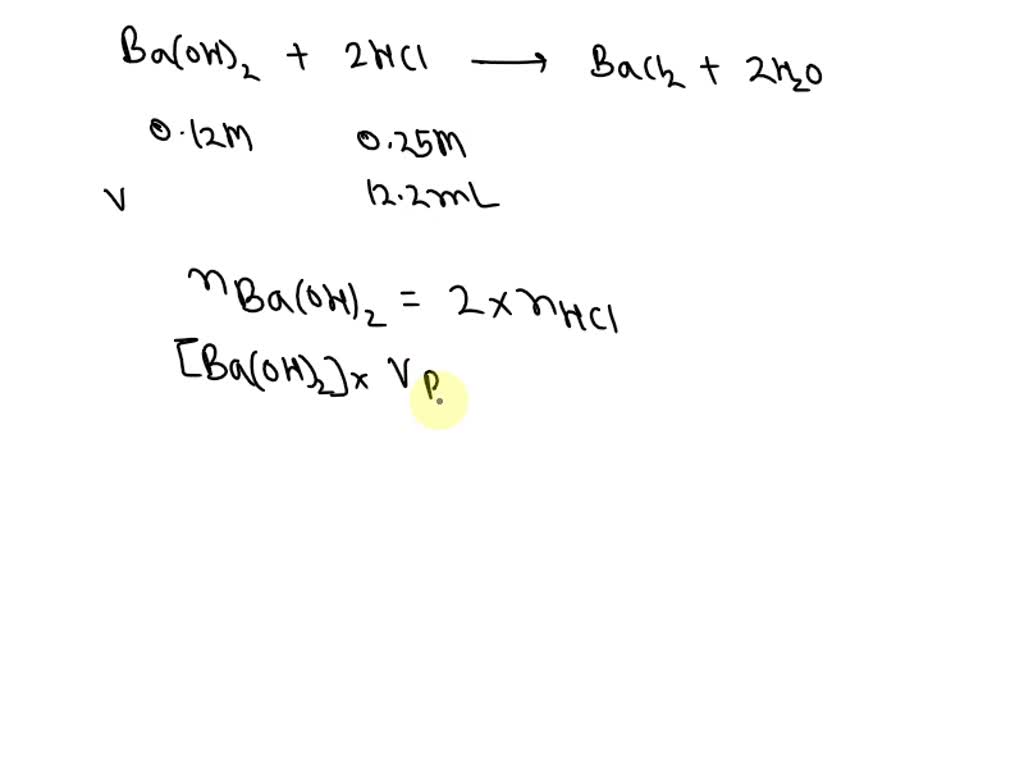 Ba(OH)₂ + 2HCl ⟶ BaCl₂ + 2H₂O
0.12M 0.25M
V 12.2mL
nBa(OH)₂ = 2 × nHCl
[Ba(OH)₂] × V B